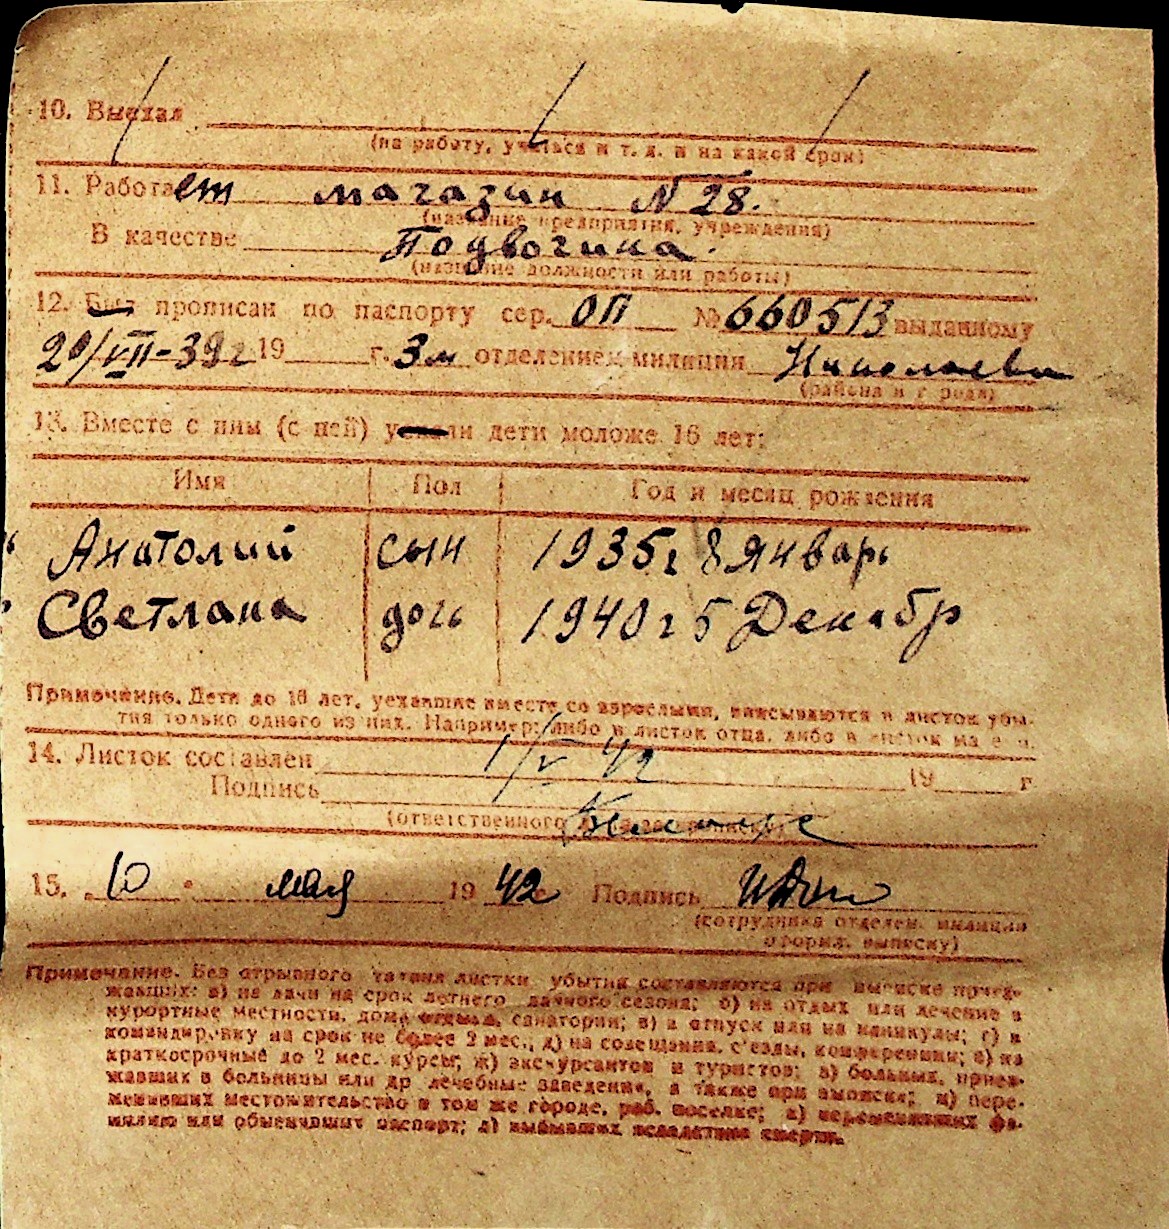 10. Выехал
(на работу, учиться и т. д. и на какой срок)
11. Работает магазин N 28.
(название предприятия, учреждения)
В качестве Подвочика.
(название должности или работы)
12. Был прописан по паспорту сер. ОП № 660513 выданному
20/VII-39г 19 г. 3м отделением милиции Николаева
(района и города)
13. Вместе с ним (с ней) уехали дети моложе 16 лет:
Имя Пол Год и месяц рождения
Анатолий сын 1935г 8 январь
Светлана дочь 1940г 5 Декабр
Примечание. Дети до 16 лет, уехавшие вместе со взрослыми, вписываются в листок убы-
тия только одного из них. Например: либо в листок отца, либо в листок матери.
14. Листок составлен 1/V 42 19 г
Подпись
(ответственного
15. 10 " мая 19 42 г. Подпись
(сотрудника отделен. милиции
оформ. выписку)
Примечание. Без отрывного талона листки убытия составляются при выписке приез-
жавших: а) на дачи на срок летнего дачного сезона; б) на отдых или лечение в
курортные местности, дома отдыха, санатории; в) в отпуск или на каникулы; г) в
командировку на срок не более 2 мес.; д) на совещания, с'езды, конференции; е) на
краткосрочные до 2 мес. курсы; ж) экскурсантов и туристов; з) больных, приез-
жавших в больницы или др лечебные заведения, а также при выписке; и) пере-
менивших местожительство в том же городе, раб. поселке; к) переменивших фа-
милию или обменявших паспорт; л) выбывших вследствие смерти.